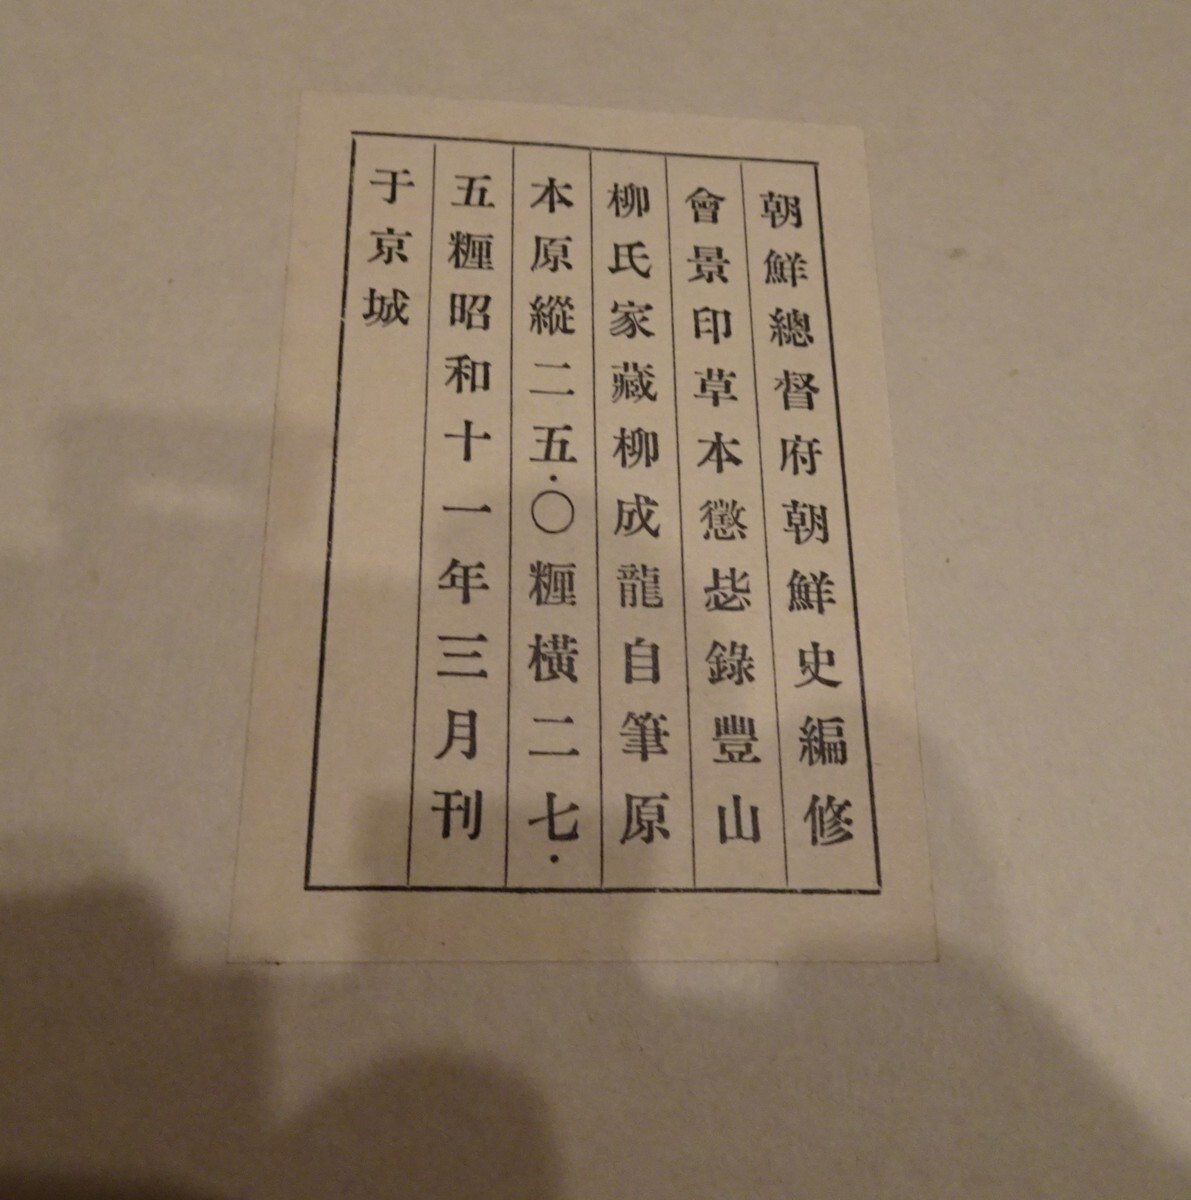 朝鮮總督府朝鮮史編修
會景印草本懲毖錄豐山
柳氏家藏柳成龍自筆原
本原縱二五·〇糎橫二七·
五糎昭和十一年三月刊
于京城